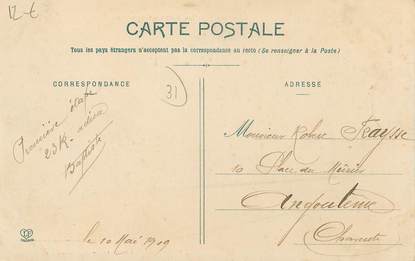 12-€
CARTE POSTALE
Tous les pays étrangers n'acceptent pas la correspondance au recto (Se renseigner à la Poste)
CORRESPONDANCE
31
Première étape
23K. adieu
Baptiste
le 10 Mai 1909
ADRESSE
Monsieur Robert Feaysse
10 Place du Mûrier
Angoulême
Charente